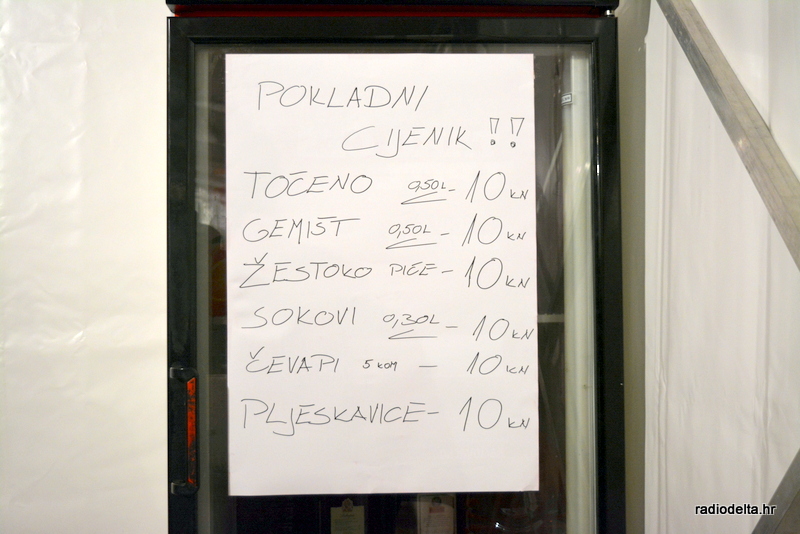 POKLADNI
CIJENIK !!
TOČENO 0,50L - 10 KN
GEMIŠT 0,50L - 10 KN
ŽESTOKO PIĆE - 10 KN
SOKOVI 0,30L - 10 KN
ČEVAPI 5 KOM - 10 KN
PLJESKAVICE - 10 KN
radiodelta.hr